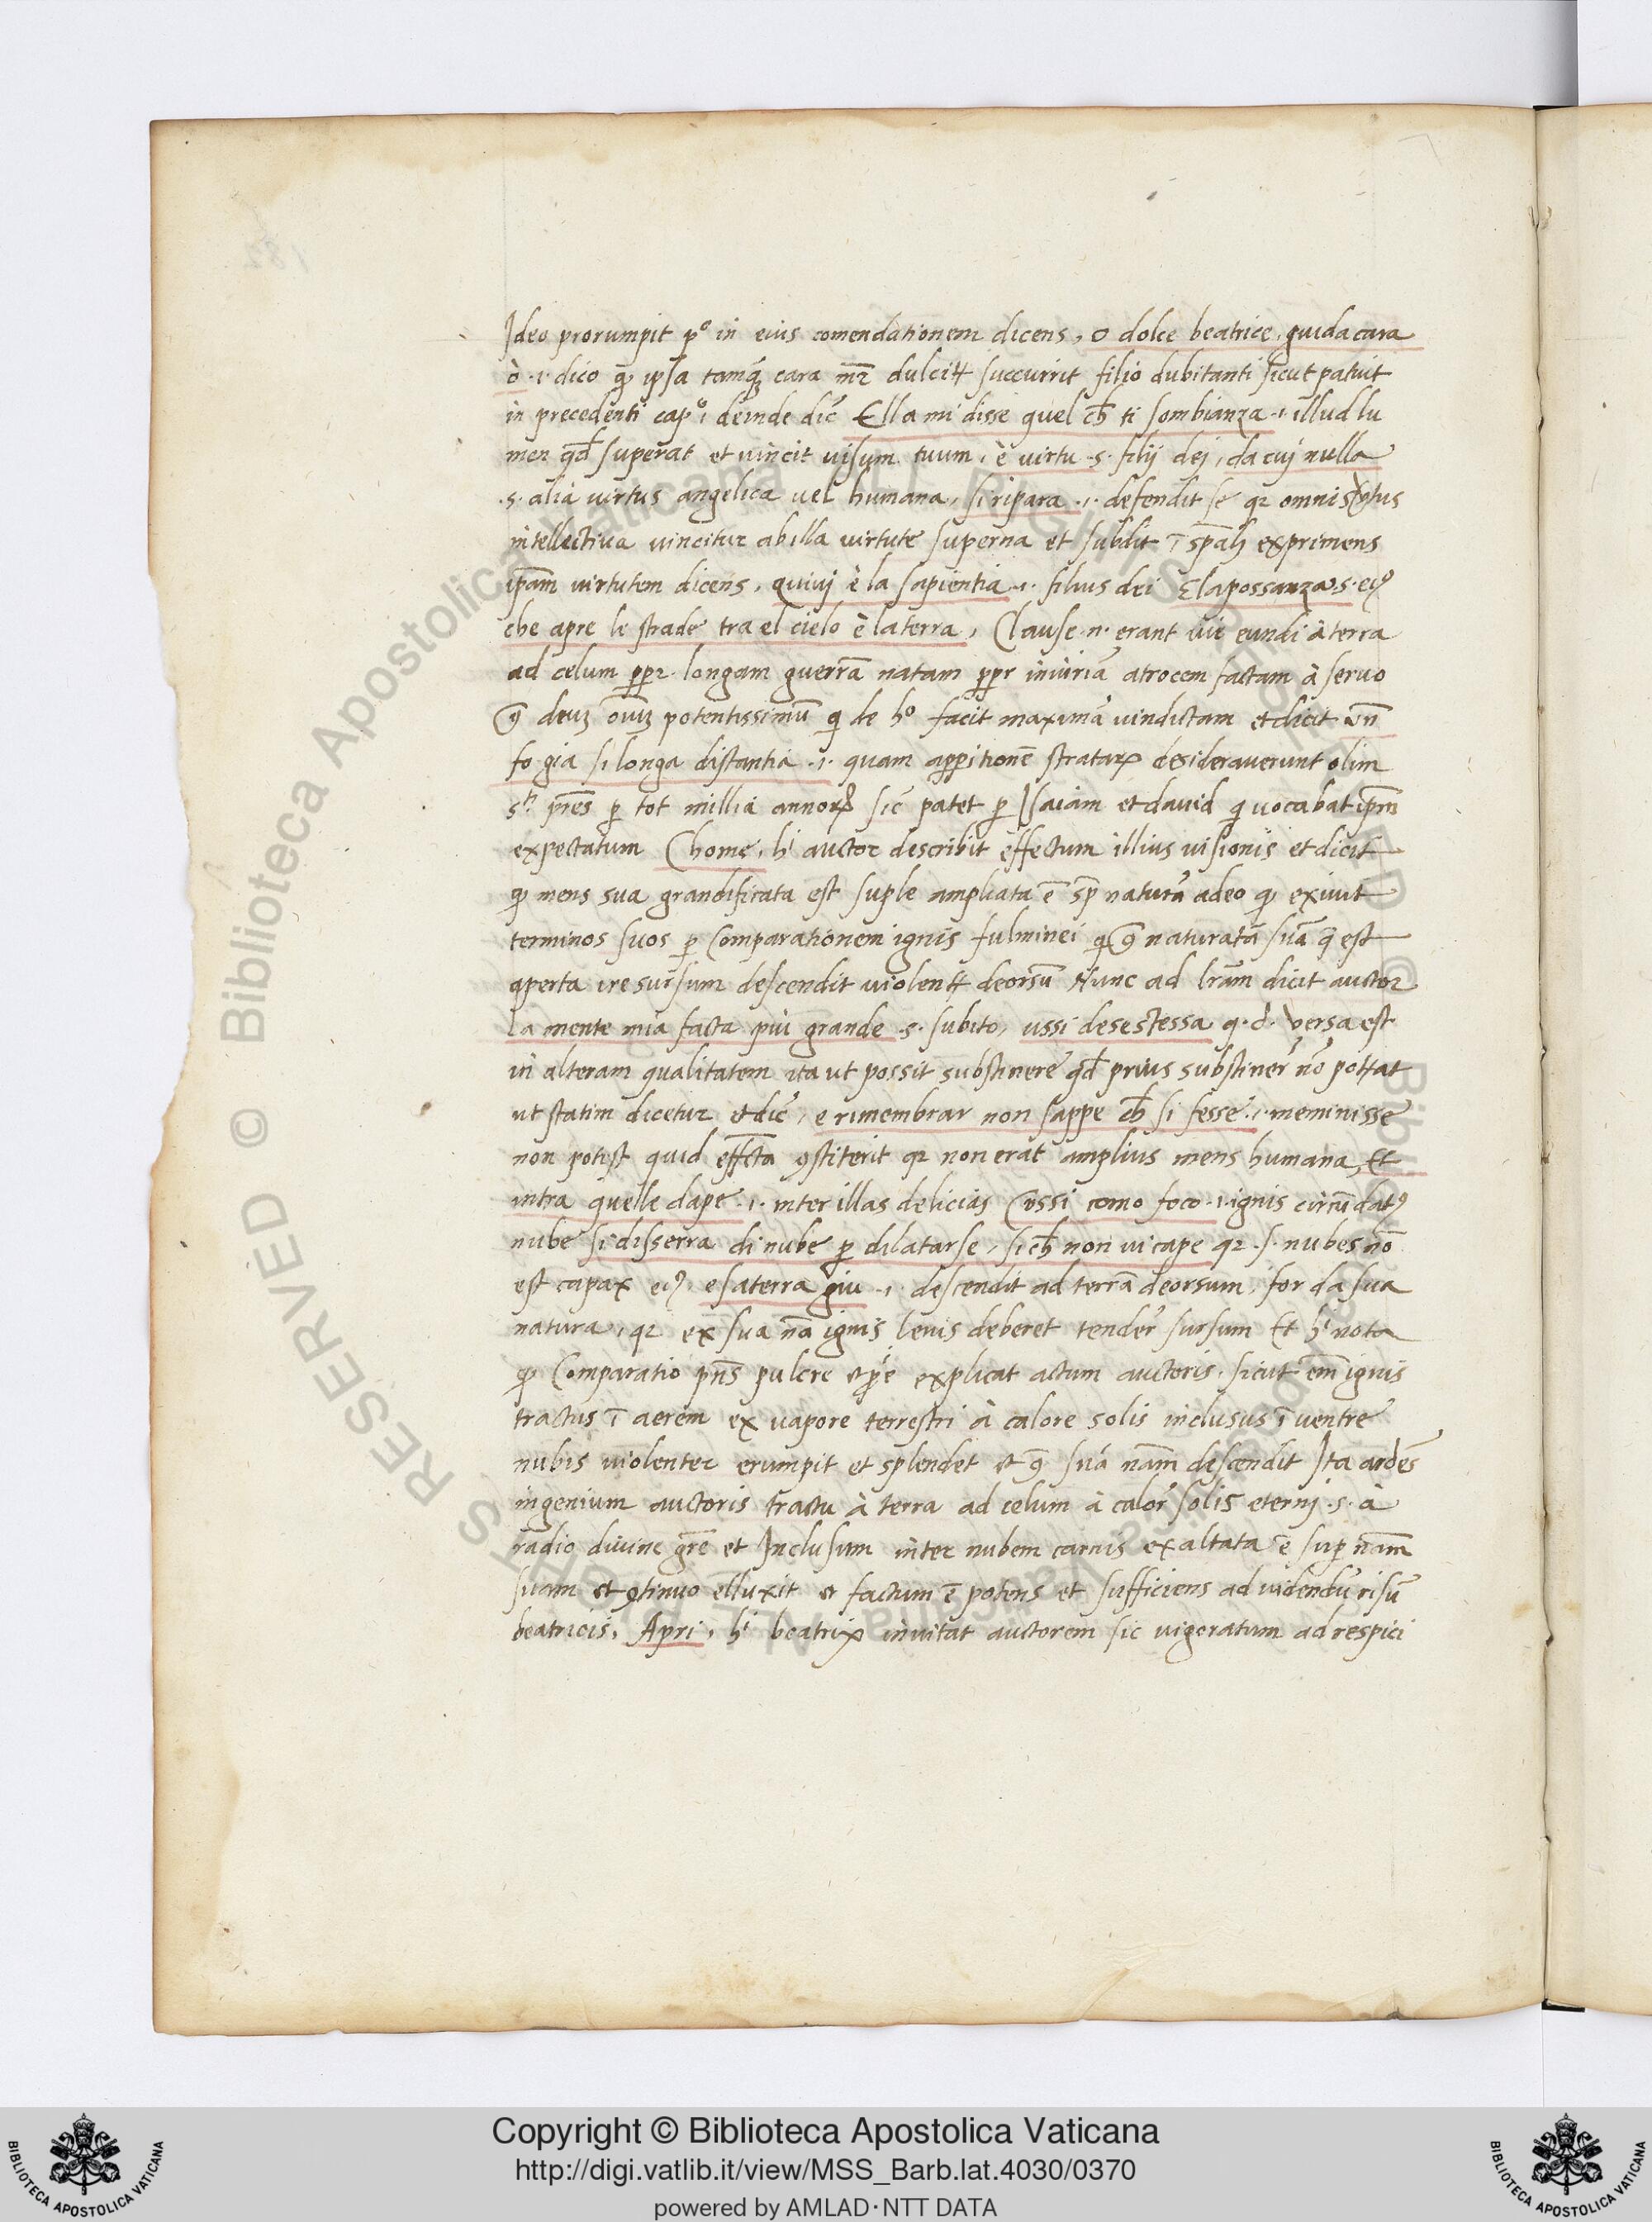 Ideo prorumpit pº in eius comendationem dicens, O dolce beatrice guida cara
ò .i. dico ꝙ ipsa tamqꝫ cara mr̄ dulcit̄ succurrit filio dubitanti sicut patuit
in precedenti capº, deinde dic̄ Ella mi disse quel ch̄ ti sombianza .i. illud lu
men qd̄ superat et vincit visum tuum, è virtu .s. filij dei, da cuj nulla
.s. alia virtus angelica vel humana, si ripara .i. defendit se qꝛ omnis
intellectiva vincitur ab illa virtute superna et subdit ī sp̄ali exprimens
ip̄am virtutem dicens, quivi è la sapientia .i. filius dei E la possanza .s. eiꝰ
che apre le strade tra el cielo è la terra, Clause .n. erant vie eundi à terra
ad celum ꝓpr̄ longam guerrā natam ꝓpr̄ iniuriā atrocem factam à servo
ꝯ deuꝫ om̄iuꝫ potentissimū qi de hº facit maximā vindictam et dicit un̄
fo gia si longa distantia .i. quam appitionē strataꝝ desideraverunt olim
s̄ti pr̄es ꝑ tot millia annoꝝ sic̄ patet ꝑ Isaiam et david qi vocabat ip̄m
expectatum Chome, hi auctor describit effectum illius visionis et dicit
ꝙ mens sua grandificata est suple ampliata ē sp̄ naturā adeo ꝙ exivit
terminos suos ꝑ Comparationem ignis fulminei qi ꝯ naturam suā que est
aperta ire sursum descendit violent̄ deorsū Nunc ad lr̄am dicit auctor
la mente mia facta più grande .s. subito, ussi de se stessa q.d. versa est
in alteram qualitatem ita ut possit substinere qd̄ prius substiner̄ nō pot̄at
ut statim dicetur et dic̄, e rimembrar non sappe ch̄ si fesse .i. meminisse
non potest quid eff̄cta ꝯstiterit qꝛ non erat amplius mens humana, Et
intra quelle dape .i. inter illas delicias Cussi como foco .i. ignis circūdatꝰ
nube si disserra di nube ꝑ dilatarse, si ch̄ non vi cape qꝛ .s. nubes nō
est capax eiꝰ, e s'aterra giu .i. descendit ad terrā deorsum, for da sua
natura, qꝛ ex sua nā ignis levis deberet tender̄ sursum Et hi nota
ꝙ Comparatio pn̄s pulcre et ꝓe explicat actum auctoris. sicut em̄ ignis
tractus ī aerem ex vapore terrestri à calore solis inclusus ī ventre
nubis violenter erumpit et splendet et ꝯ suā nām descendit Ita ardēs
ingenium auctoris tractu à terra ad celum à calor̄ solis eternj .s. à
radio divine gr̄e et Inclusum inter nubem carnis exaltata ē sup̄ nām
suam et ꝯtinuo elluxit et factum ē potens et sufficiens ad videndū risū
beatricis. Apri, hi beatrix invitat auctorem sic vigoratum ad respici
Copyright © Biblioteca Apostolica Vaticana
http://digi.vatlib.it/view/MSS_Barb.lat.4030/0370
powered by AMLAD·NTT DATA